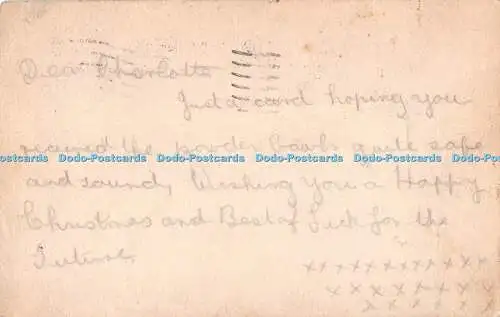 Dear Charlotte
Just a card hoping you
received the powder bowls quite safe
Dodo-Postcards Dodo-Postcards Dodo-Postcards Dodo-Postcards Dodo-Postcards
and sound, Wishing You a Happy
Christmas and Best of Luck for the
Future.
x x x x x x x x x x x
x x x x x x x x
x x x x x x